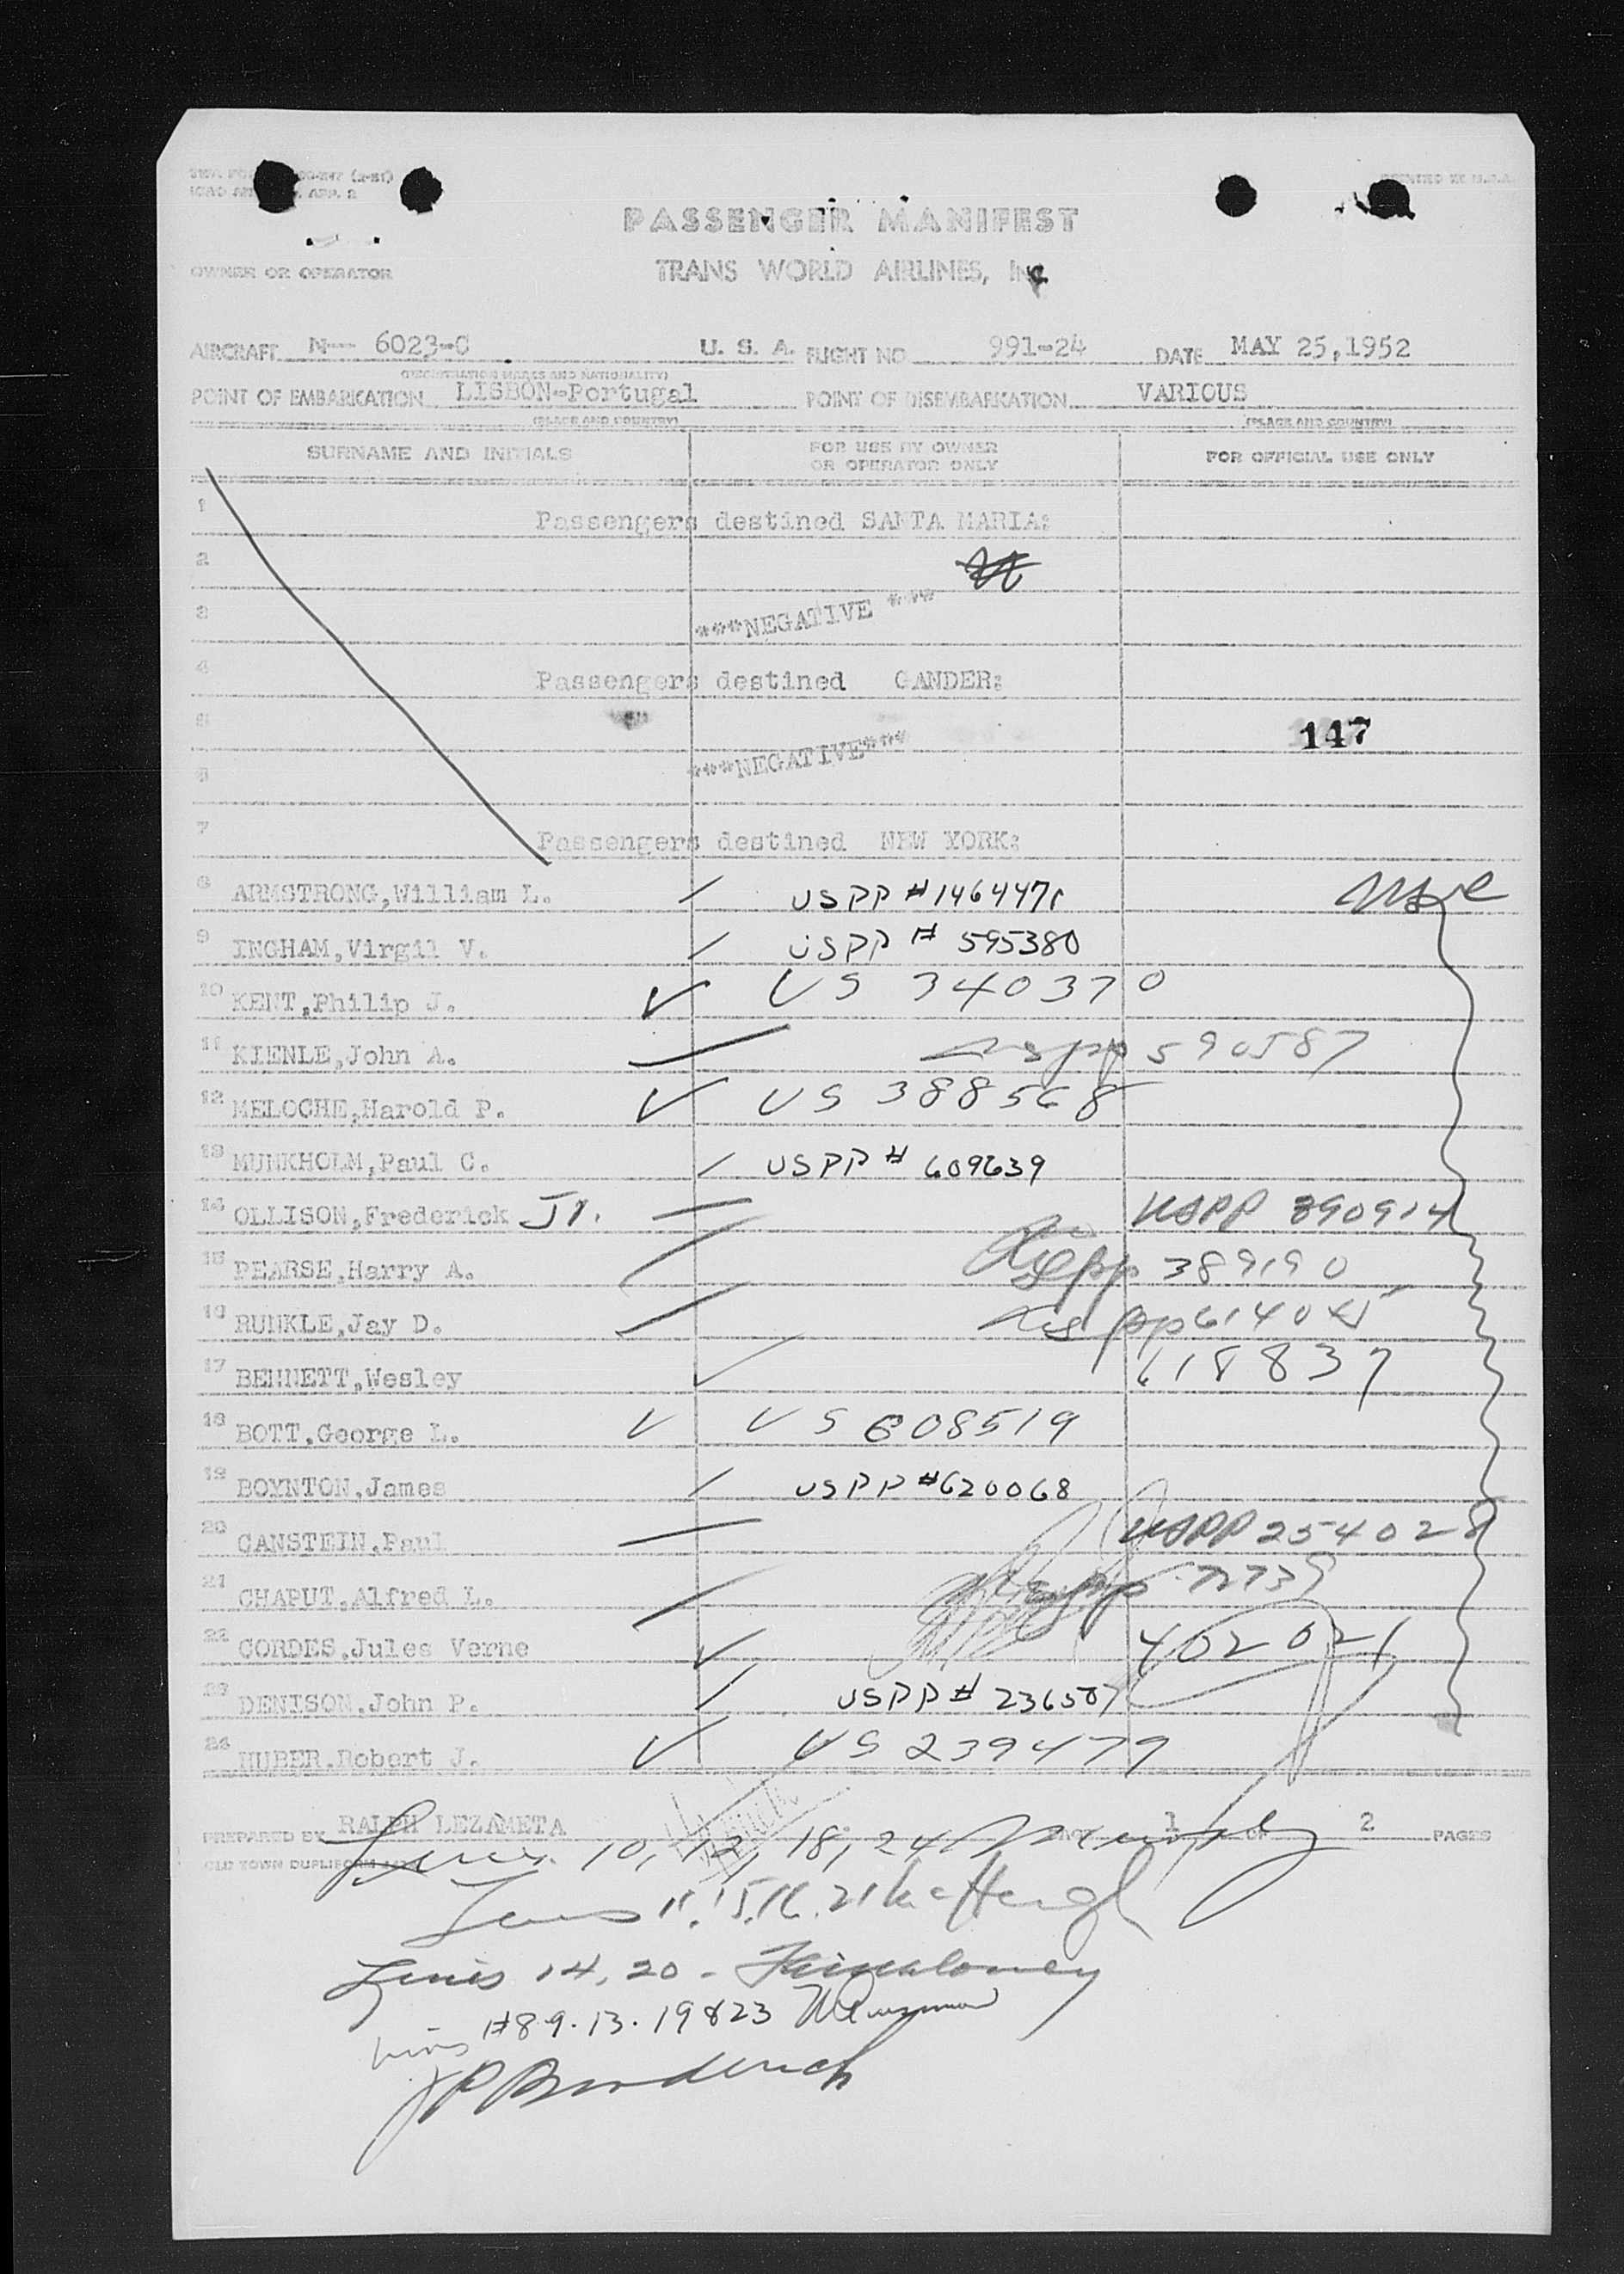 PASSENGER MANIFEST
OWNER OR OPERATOR TRANS WORLD AIRLINES, INC.
AIRCRAFT N-- 6023-C U. S. A. FLIGHT NO 991-24 DATE MAY 25,1952
(REGISTRATION MARKS AND NATIONALITY)
POINT OF EMBARKATION LISBON-Portugal POINT OF DISEMBARKATION VARIOUS
(PLACE AND COUNTRY) (PLACE AND COUNTRY)
SURNAME AND INITIALS FOR USE BY OWNER OR OPERATOR ONLY FOR OFFICIAL USE ONLY
1 Passengers destined SANTA MARIA:
2
3 ***NEGATIVE ***
4 Passengers destined GANDER:
5 147
6 ***NEGATIVE***
7 Passengers destined NEW YORK:
8 ARMSTRONG,William L. USPP #146447
9 INGHAM,Virgil V. USPP # 595380
10 KENT,Philip J. US 340370
11 KIENLE,John A. uspp 590587
12 MELOCHE,Harold P. US 388568
13 MUNKHOLM,Paul C. USPP # 609639
14 OLLISON,Frederick Jr. USPP 390914
15 PEARSE,Harry A. uspp 389190
16 RUNKLE,Jay D. us pp
17 BENNETT,Wesley 618837
18 BOTT,George L. US 608519
19 BOYNTON,James USPP #620068
20 CANSTEIN,Paul USPP 254028
21 CHAPUT,Alfred L. uspp 72739
22 CORDES,Jules Verne 402021
23 DENISON,John P. USPP # 236587
24 HUBER,Robert J. US 239479
PREPARED BY RALPH LEZAMETA PAGE 1 OF 2 PAGES
OLD TOWN DUPLIFORM
Lines 10, 12, 18, 24 Murphy
Lines 11, 15, 16, 21
Lines 14, 20 -
Lines #8 9. 13. 19 & 23
JP Broderick